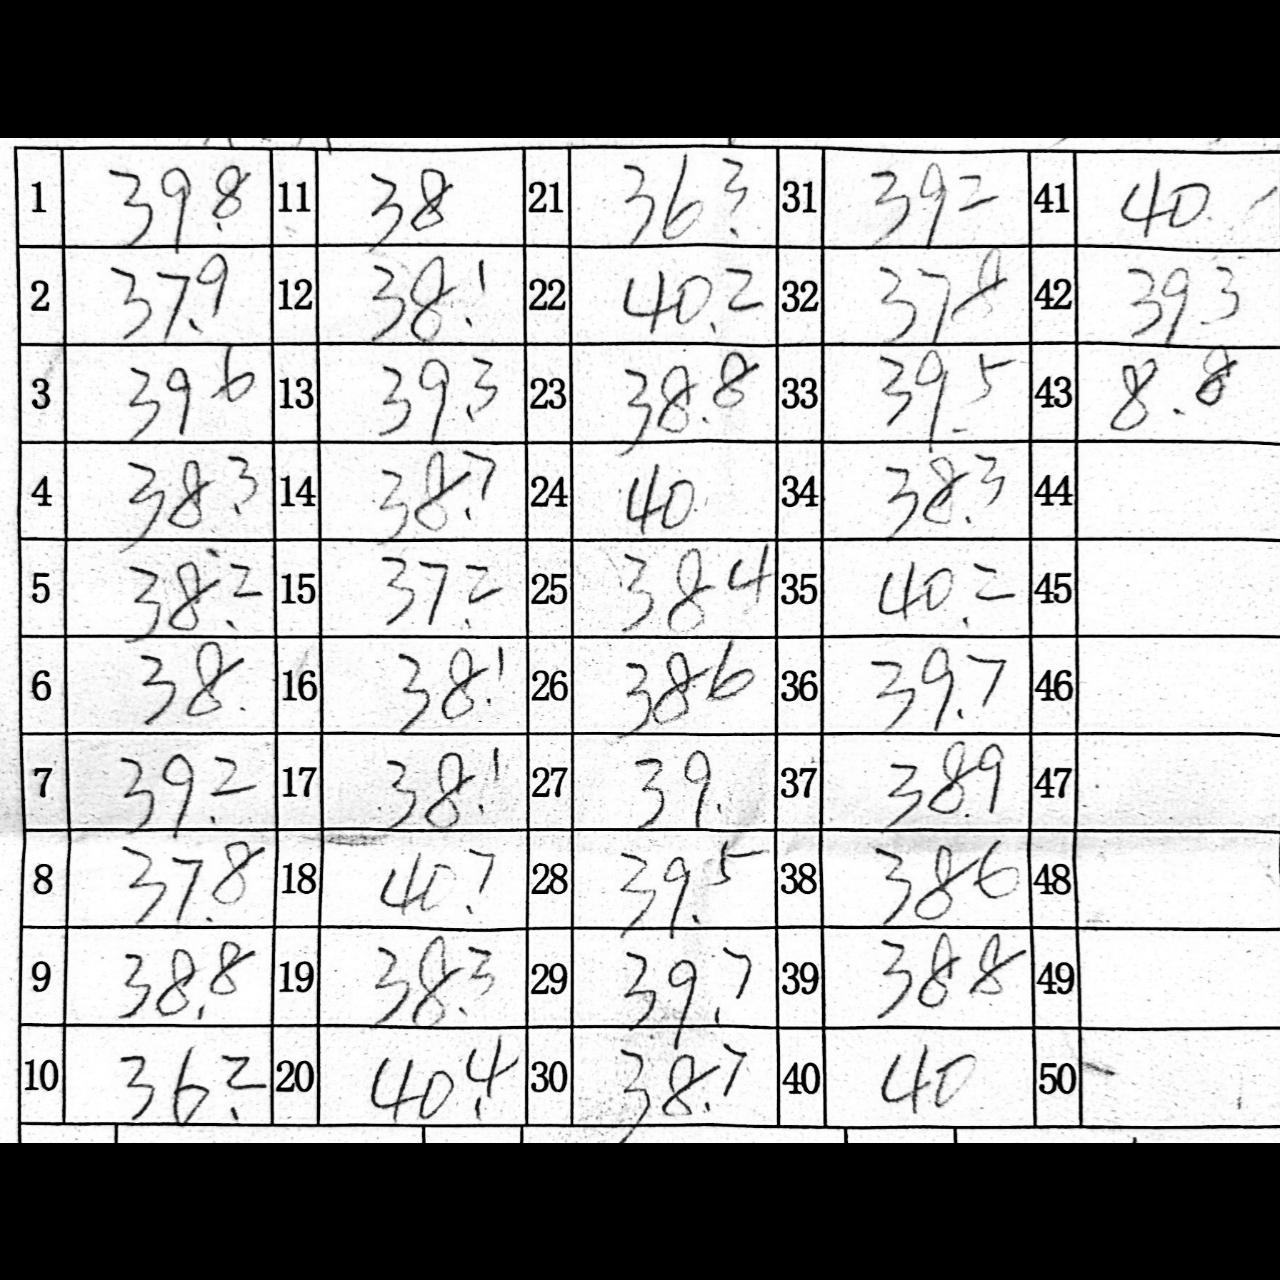 1 39.8 11 38 21 36.3 31 392 41 40.
2 37.9 12 38.1 22 40.2 32 378 42 39.3
3 396 13 39.3 23 38.8 33 39.5 43 8.8
4 38.3 14 38.7 24 40. 34 38.3 44
5 38.2 15 37.2 25 384 35 40.2 45
6 38. 16 38.1 26 386 36 39.7 46
7 39.2 17 38.1 27 39. 37 38.9 47
8 37.8 18 40.7 28 39.5 38 386 48
9 38.8 19 38.3 29 39.7 39 388 49
10 36.2 20 40.4 30 38.7 40 40 50